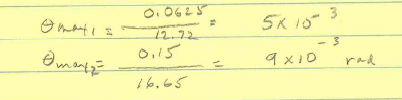 θmax1 = 0.0625 / 12.72 = 5x10^3
θmax2 = 0.15 / 16.65 = 9x10^-3 rad